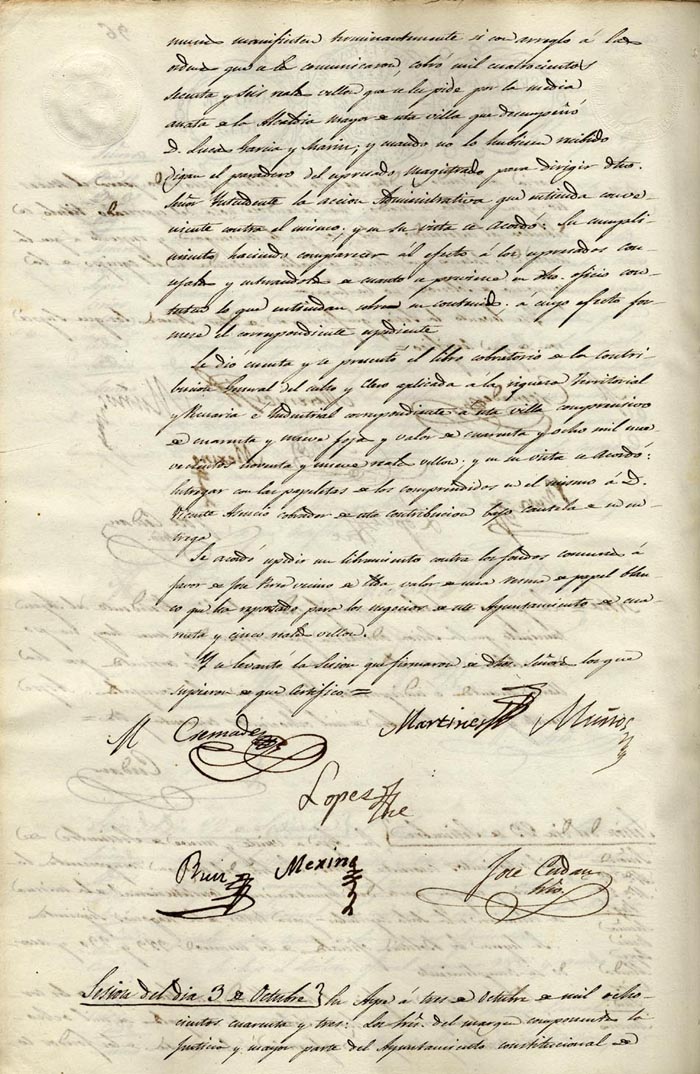 manifiesten terminantemente si con arreglo á las
ordenes que se le comunicaron, cobró mil cuatrocientos
sesenta y seis reales vellon que se les pide por la media
anata de la Alcaldia mayor de esta villa que desempeñó
D. Lucas Garcia y Marin; y cuando no lo hubiesen recibido
digan el paradero del espresado magistrado para dirigir dho.
Señor Intendente la accion Administrativa que entienda conve-
niente contra el mismo: y en su vista se acordó: Su cumpli-
miento haciendo comparecer al efecto á los espresados con-
cejales y enterandoles de cuanto se previene en dho. oficio con-
testen lo que entiendan sobre su contenido á cuyo efecto for-
mese el correspondiente espediente
Se dió cuenta y se presentó el libro cobratorio de la contri-
bucion General del culto y Clero aplicada a la riqueza Territorial
y Pecuaria é Industrial correspondiente a esta villa comprensivo
de cuarenta y nueve fojas y valor de cuarenta y ocho mil nue-
vecientos noventa y nueve reales vellon: y en su vista se Acordó:
Entregar con las papeletas de los comprendidos en el mismo á D.
Vicente cobrador de esta contribucion bajo cautela de su en-
trega.
Se acordó espedir un libramiento contra los fondos comunes á
favor de José vecino de valor de una resma de papel blan-
co que ha aportado para los negocios de este Ayuntamiento de cua-
renta y cinco reales vellon.
Y se levantó la Sesion que firmaron de dhos. Señores los que
supieron de que Certifico =
M Cremades Martines Muños
Lopes
Ruiz Mexina José Cerdan
Srio.
Sesion del dia 3 de Octubre } En Aspe á tres de Octubre de mil ocho-
cientos cuarenta y tres: Los Sres. del margen componentes la
Justicia y mayor parte del Ayuntamiento constitucional de